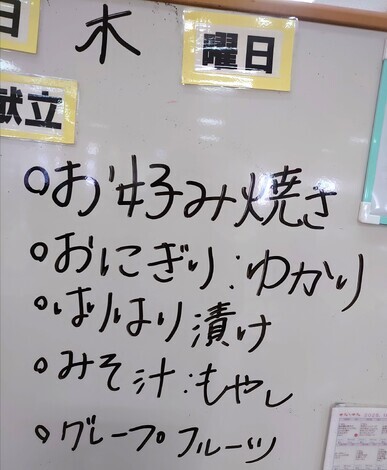 日 木 曜日
献立
・お好み焼き
・おにぎり:ゆかり
・ぱりぱり漬け
・みそ汁:もやし
・グレープフルーツ